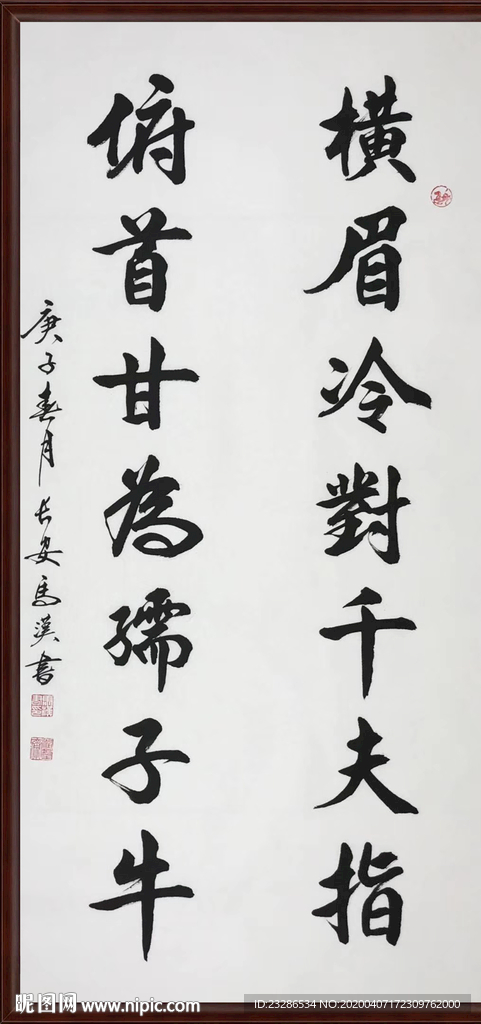 橫眉冷對千夫指
俯首甘為孺子牛
庚子春月长安馬漢書
昵图网 www.nipic.com
ID:23286534 NO:20200407172309762000